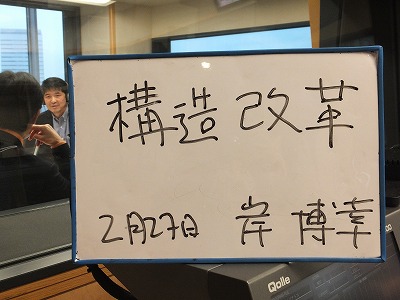 構造改革
2月27日 岸 博幸
Qolle